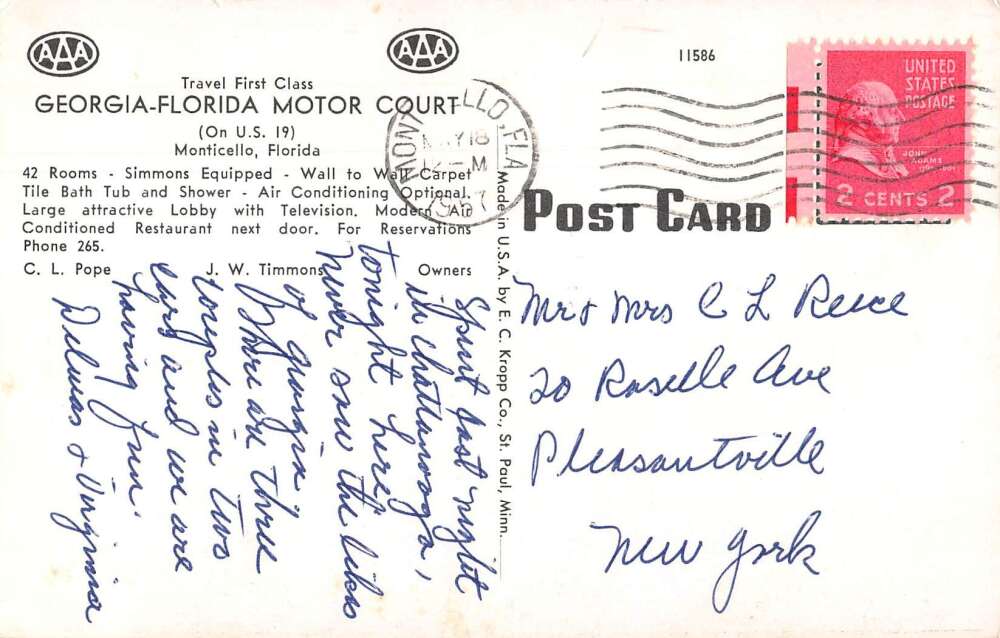 AAA
AAA
Travel First Class
GEORGIA-FLORIDA MOTOR COURT
(On U.S. 19)
Monticello, Florida
42 Rooms - Simmons Equipped - Wall to Wall Carpet
Tile Bath Tub and Shower - Air Conditioning Optional.
Large attractive Lobby with Television. Modern Air
Conditioned Restaurant next door. For Reservations
Phone 265.
C. L. Pope J. W. Timmons Owners
Spent last night
in Chattanooga,
tonight here,
never saw the likes
of Georgia.
There are three
couples in two
cars and we are
having fun.
Delmas + Virginia
Made in U.S.A. by E. C. Kropp Co., St. Paul, Minn.
11586
MONTICELLO, FLA
MAY 18
12 - M
1957
UNITED
STATES
POSTAGE
JOHN
ADAMS
2 CENTS 2
POST CARD
Mr & Mrs C L Reece
20 Roselle Ave
Pleasantville
New York